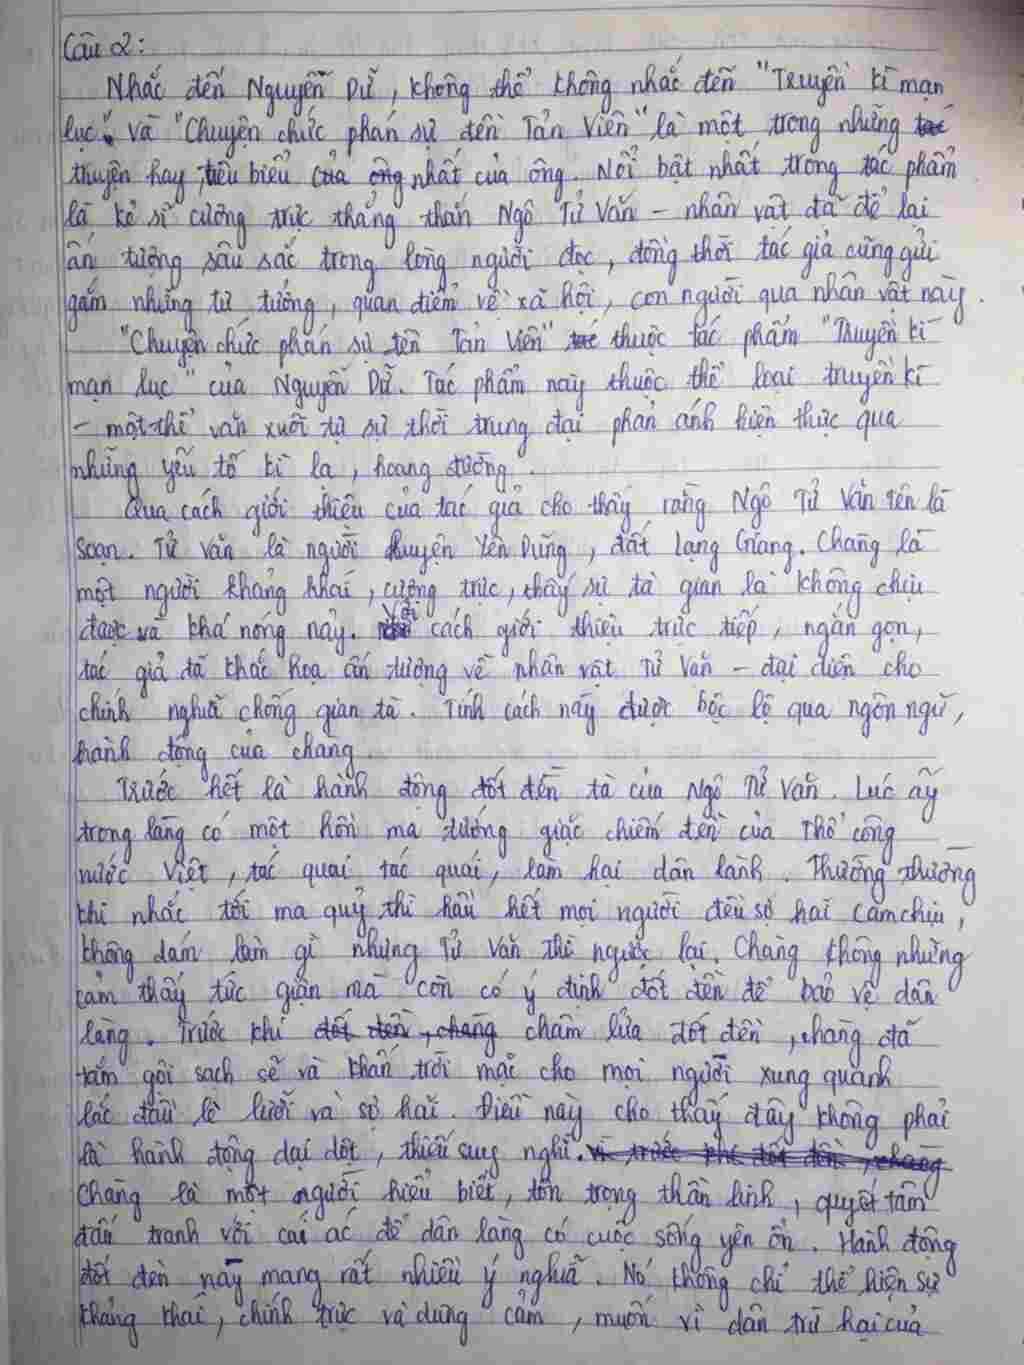 Câu 2:
Nhắc đến Nguyễn Dữ, không thể không nhắc đến "Truyền kì mạn
lục". Và "Chuyện chức phán sự đền Tản Viên" là một trong những
truyện hay, tiêu biểu nhất của ông. Nổi bật nhất trong tác phẩm
là kẻ sĩ cương trực thẳng thắn Ngô Tử Văn - nhân vật đã để lại
ấn tượng sâu sắc trong lòng người đọc, đồng thời tác giả cũng gửi
gắm những tư tưởng, quan điểm về xã hội, con người qua nhân vật này.
"Chuyện chức phán sự đền Tản Viên" thuộc tác phẩm "Truyền kì
mạn lục" của Nguyễn Dữ. Tác phẩm này thuộc thể loại truyền kì
- một thể văn xuôi tự sự thời trung đại phản ánh hiện thực qua
những yếu tố kì lạ, hoang đường.
Qua cách giới thiệu của tác giả cho thấy rằng Ngô Tử Văn tên là
Soạn. Tử Văn là người huyện Yên Dũng, đất Lạng Giang. Chàng là
một người khảng khái, cương trực, thấy sự tà gian là không chịu
được và khá nóng nảy. Với cách giới thiệu trực tiếp, ngắn gọn,
tác giả đã khắc hoạ ấn tượng về nhân vật Tử Văn - đại diện cho
chính nghĩa chống gian tà. Tính cách này được bộc lộ qua ngôn ngữ,
hành động của chàng.
Trước hết là hành động đốt đền tà của Ngô Tử Văn. Lúc ấy
trong làng có một hồn ma tướng giặc chiếm đền của Thổ công
nước Việt, tác quai tác quái, làm hại dân lành. Thường thường
khi nhắc tới ma quỷ thì hầu hết mọi người đều sợ hãi cam chịu,
không dám làm gì nhưng Tử Văn thì ngược lại. Chàng không những
cảm thấy tức giận mà còn có ý định đốt đền để bảo vệ dân
làng. Trước khi châm lửa đốt đền, chàng đã
tắm gội sạch sẽ và khấn trời mặc cho mọi người xung quanh
lắc đầu lè lưỡi và sợ hãi. Điều này cho thấy đây không phải
là hành động dại dột, thiếu suy nghĩ.
Chàng là một người hiểu biết, tôn trọng thần linh, quyết tâm
đấu tranh với cái ác để dân làng có cuộc sống yên ổn. Hành động
đốt đền này mang rất nhiều ý nghĩa. Nó không chỉ thể hiện sự
khảng khái, chính trực và dũng cảm, muốn vì dân trừ hại của